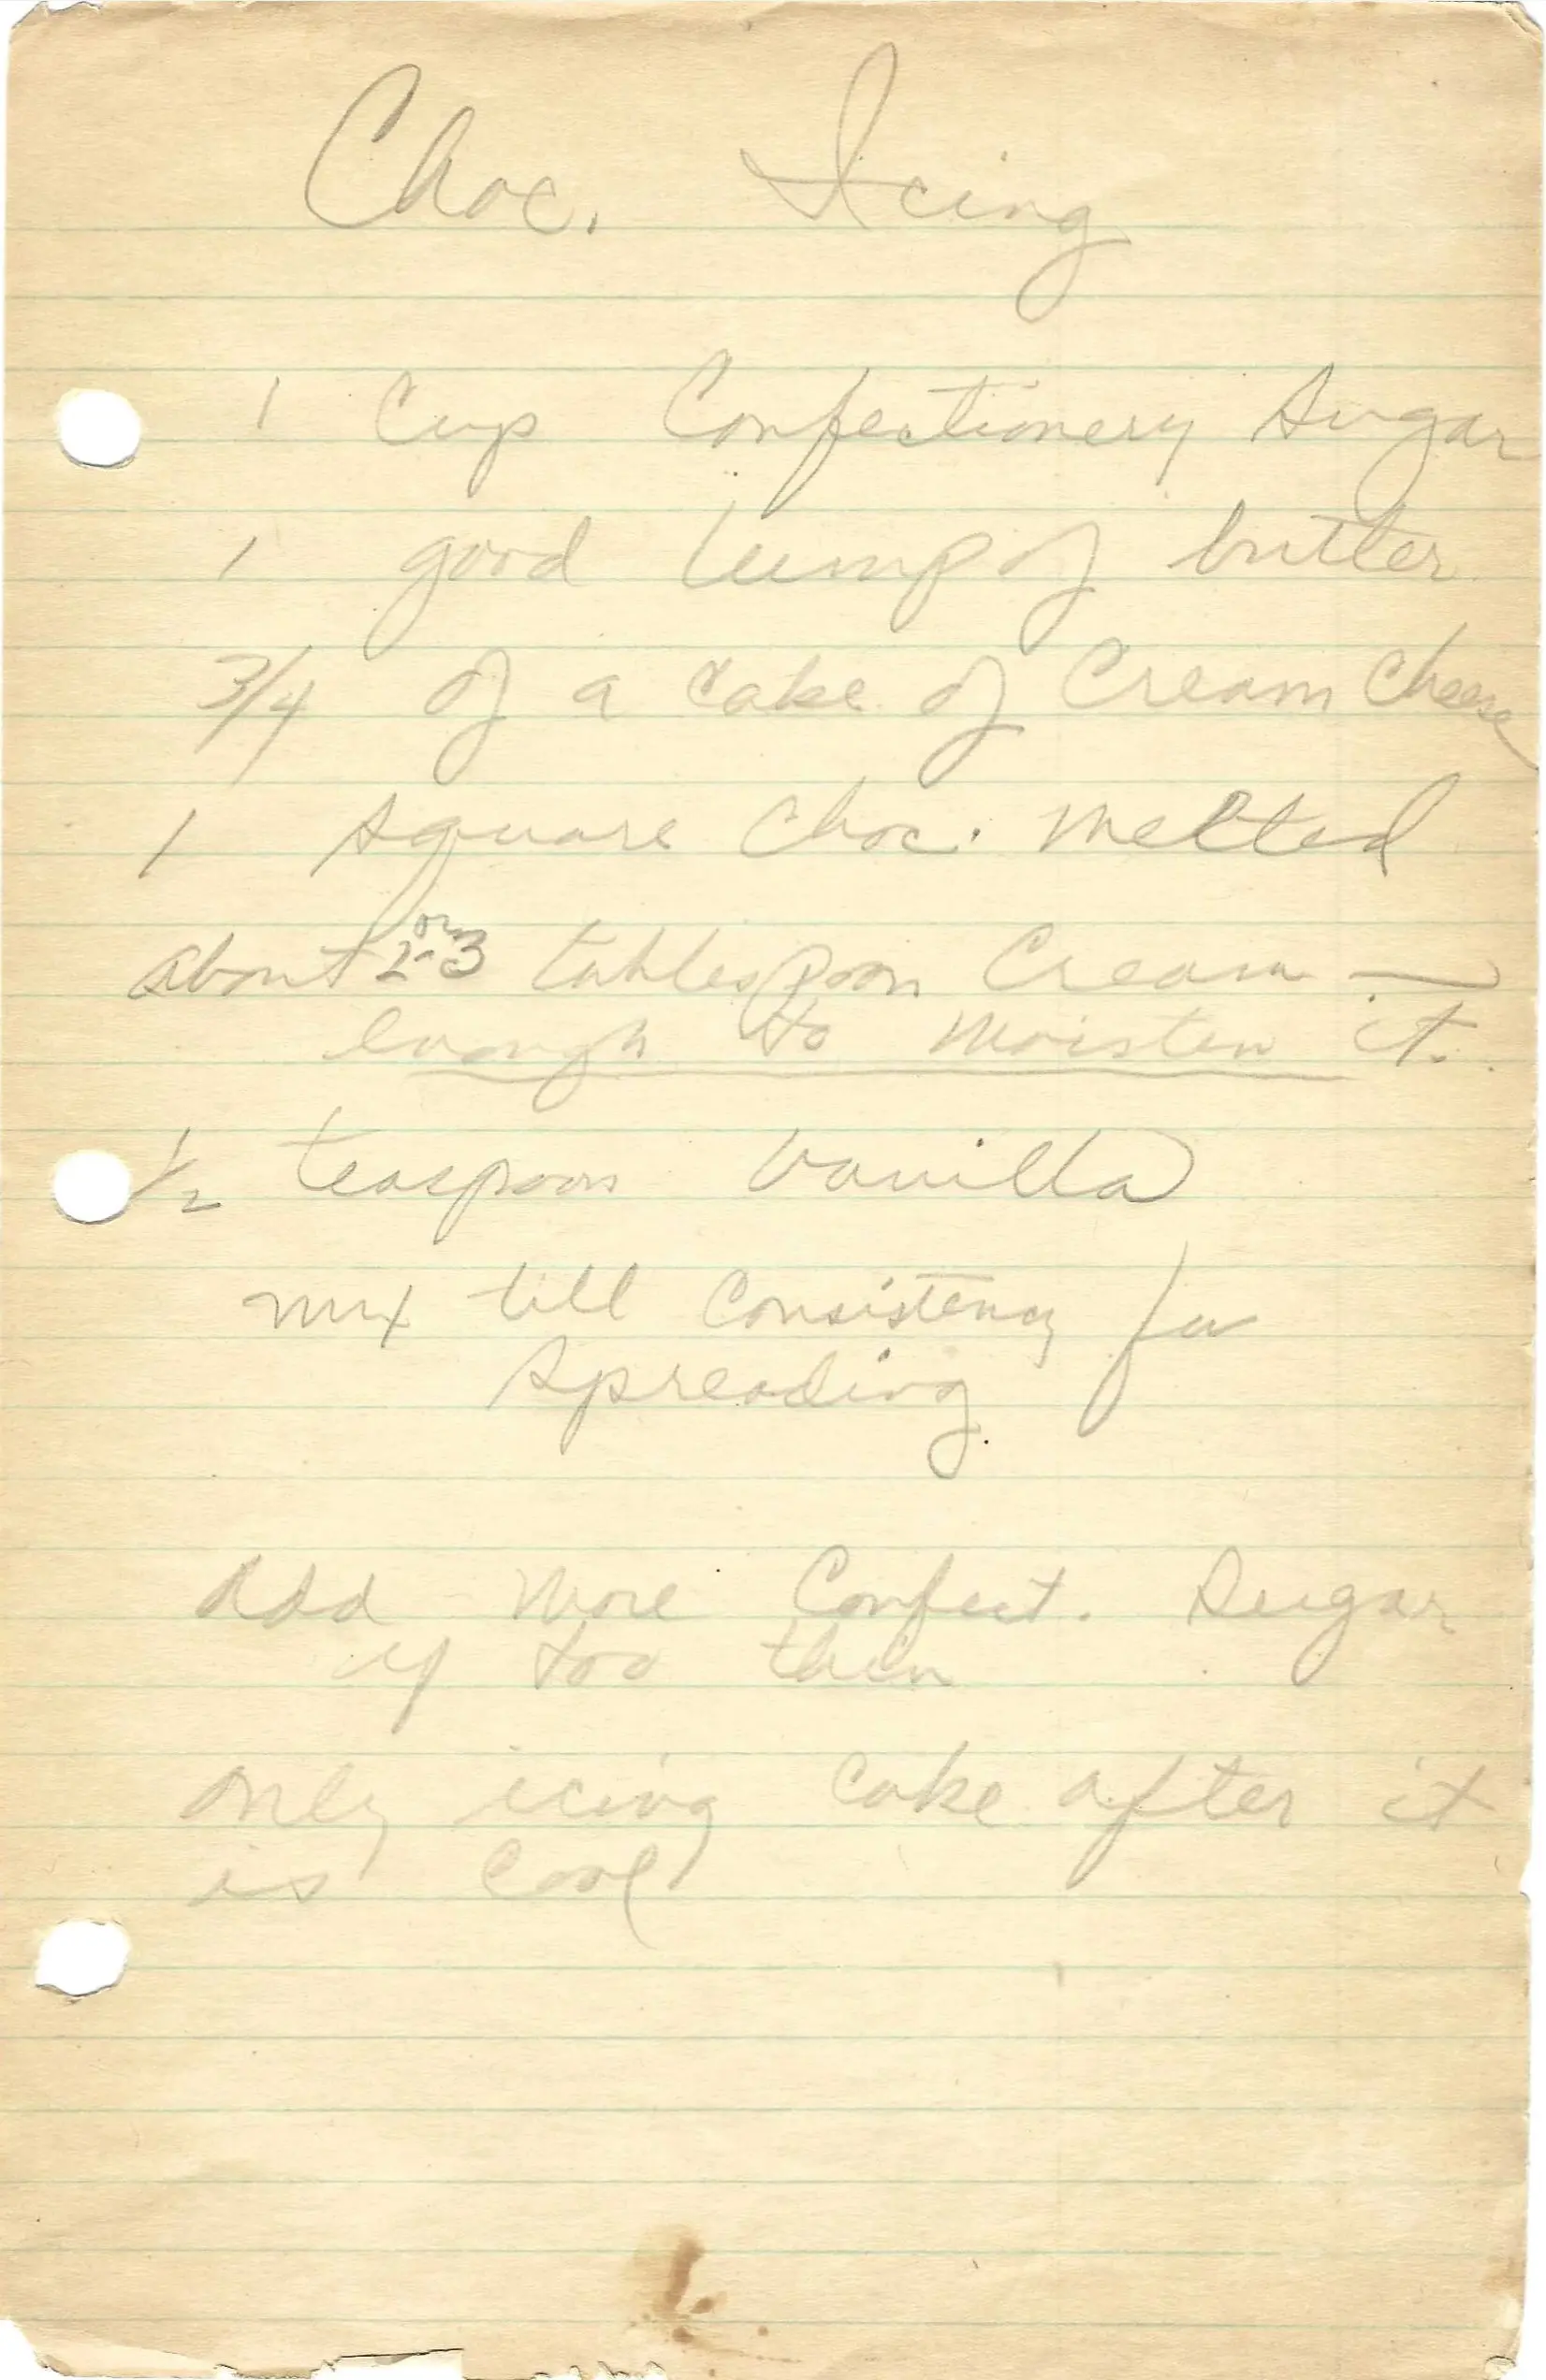 Choc. Icing
1 Cup Confectionery Sugar
1 good lump of butter
3/4 of a cake of Cream Cheese
1 square Choc. Melted
about 2 or 3 tablespoon Cream —
enough to moisten it.
1/2 teaspoon Vanilla
mix till Consistency for
spreading.
add more Confect. Sugar
if too thin
only icing cake after it
is cool